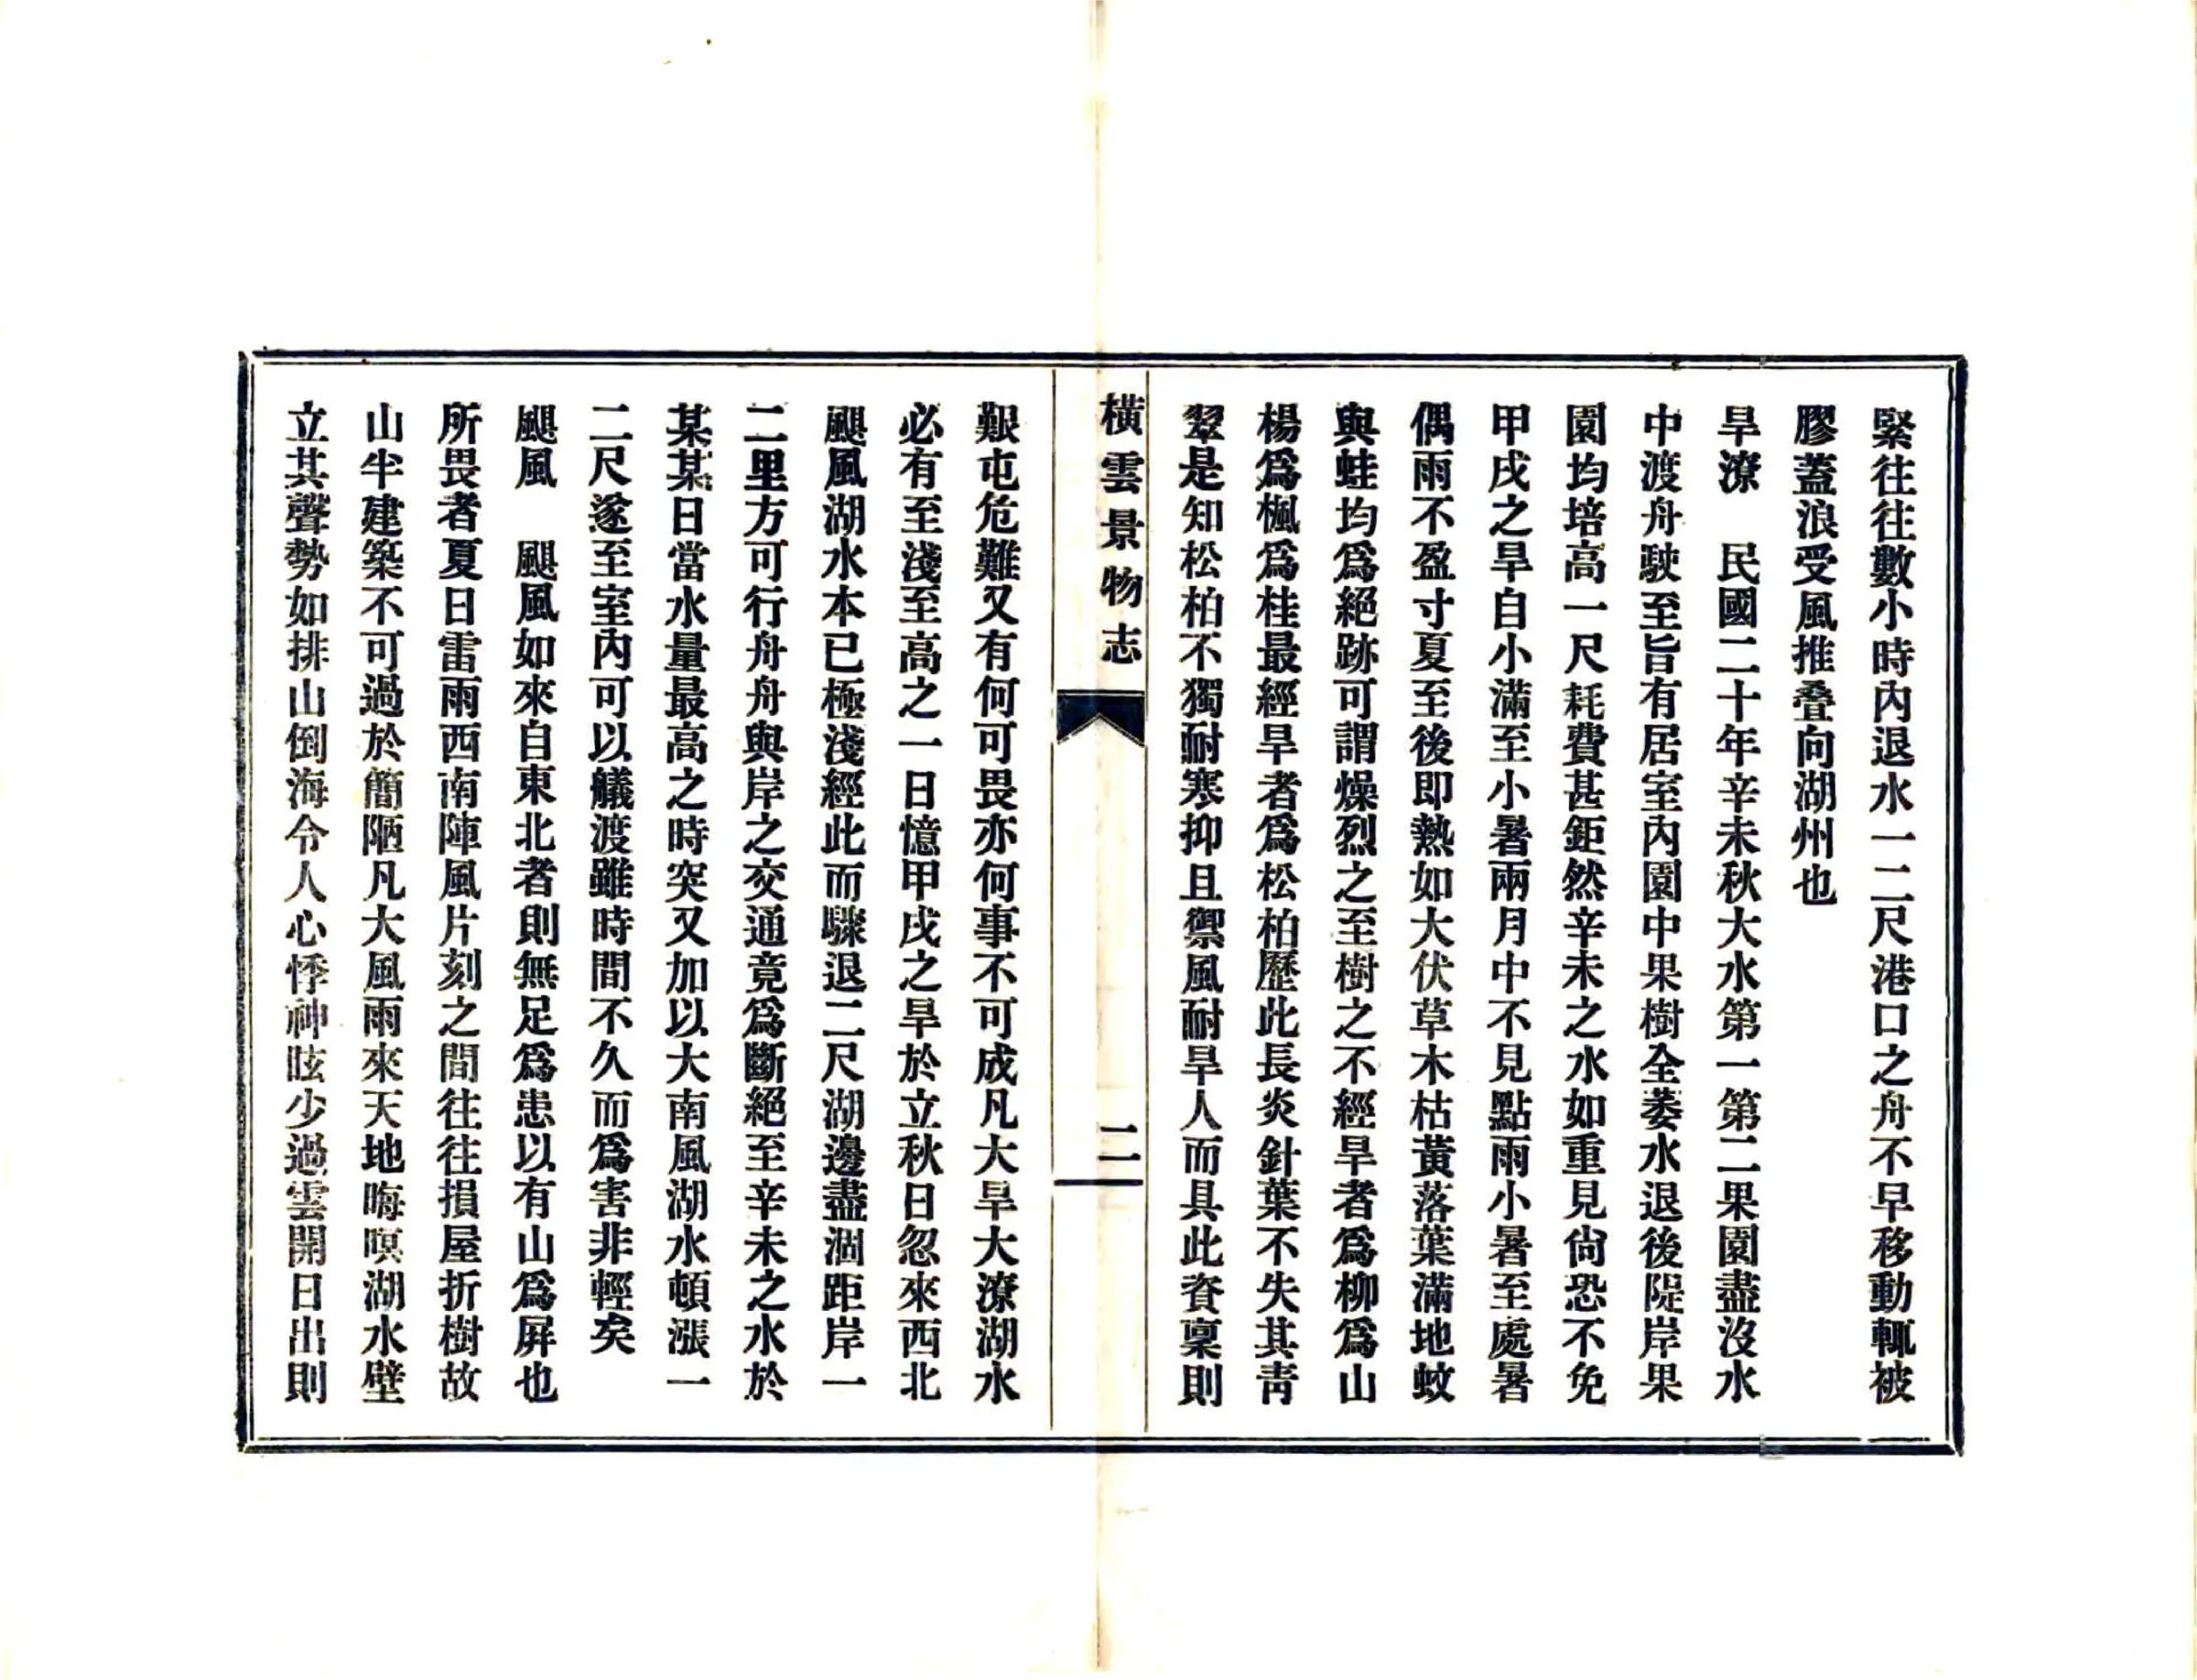 緊往往數小時內退水一二尺港口之舟不早移動輒被
膠蓋浪受風推叠向湖州也
旱潦　民國二十年辛未秋大水第一第二果園盡沒水
中渡舟駛至旨有居室內園中果樹全萎水退後隄岸果
園均培高一尺耗費甚鉅然辛未之水如重見尙恐不免
甲戌之旱自小滿至小暑兩月中不見點雨小暑至處暑
偶雨不盈寸夏至後即熱如大伏草木枯黃落葉滿地蚊
與蛙均爲絕跡可謂燥烈之至樹之不經旱者爲柳爲山
楊爲楓爲桂最經旱者爲松柏歷此長炎針葉不失其靑
翠是知松柏不獨耐寒抑且禦風耐旱人而具此資稟則
橫雲景物志
二
艱屯危難又有何可畏亦何事不可成凡大旱大潦湖水
必有至淺至高之一日憶甲戌之旱於立秋日忽來西北
颶風湖水本已極淺經此而驟退二尺湖邊盡涸距岸一
二里方可行舟舟與岸之交通竟爲斷絕至辛未之水於
某某日當水量最高之時突又加以大南風湖水頓漲一
二尺遂至室內可以艤渡雖時間不久而爲害非輕矣
颶風　颶風如來自東北者則無足爲患以有山爲屛也
所畏者夏日雷雨西南陣風片刻之間往往損屋折樹故
山半建築不可過於簡陋凡大風雨來天地晦暝湖水壁
立其聲勢如排山倒海令人心悸神眩少過雲開日出則